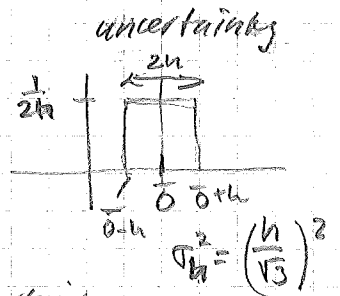 uncertainty
2h
1/2h
0̅-h 0̅ 0̅+h
σ_h² = (h/√3)²